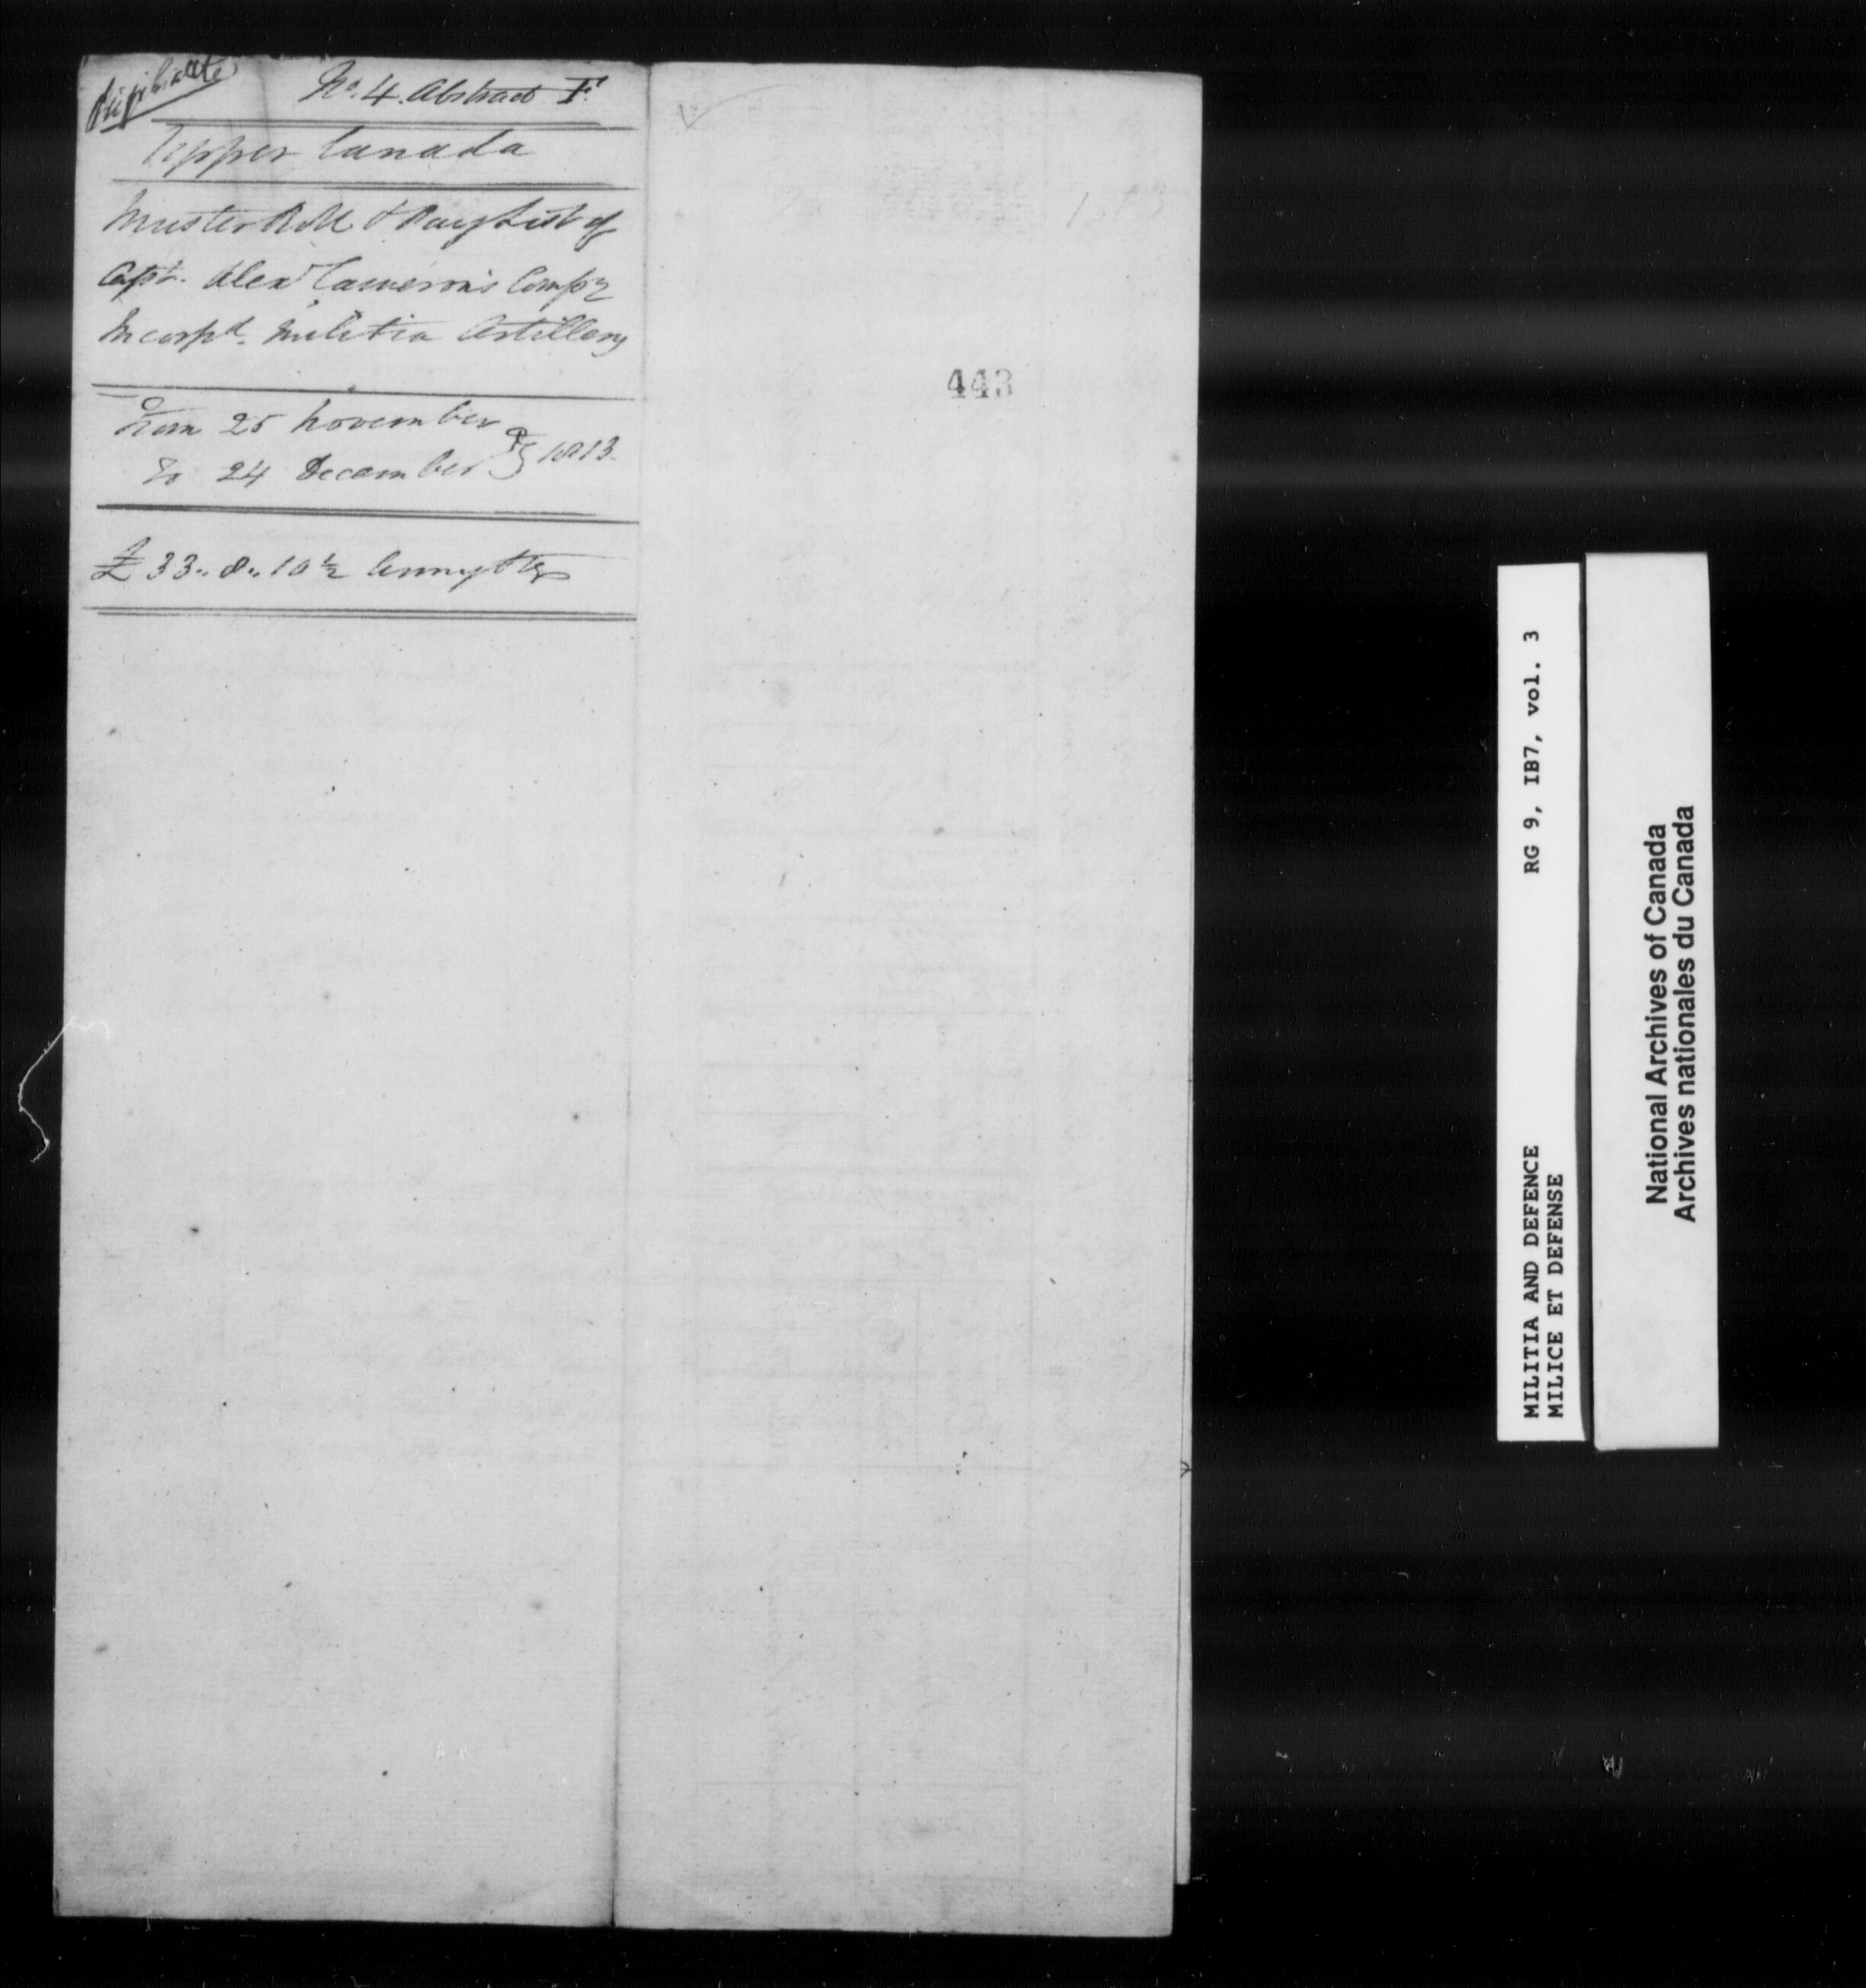 Duplicate
No. 4. Abstract F.
Upper Canada
Muster Roll & Pay List of
Capt. Alexr Cameron's Compy
Incorpd. Militia Artillery
From 25 November
To 24 December } 1813.
£33.. 8.. 10 ½ Army
443
RG 9, IB7, vol. 3
MILITIA AND DEFENCE
MILICE ET DEFENSE
National Archives of Canada
Archives nationales du Canada